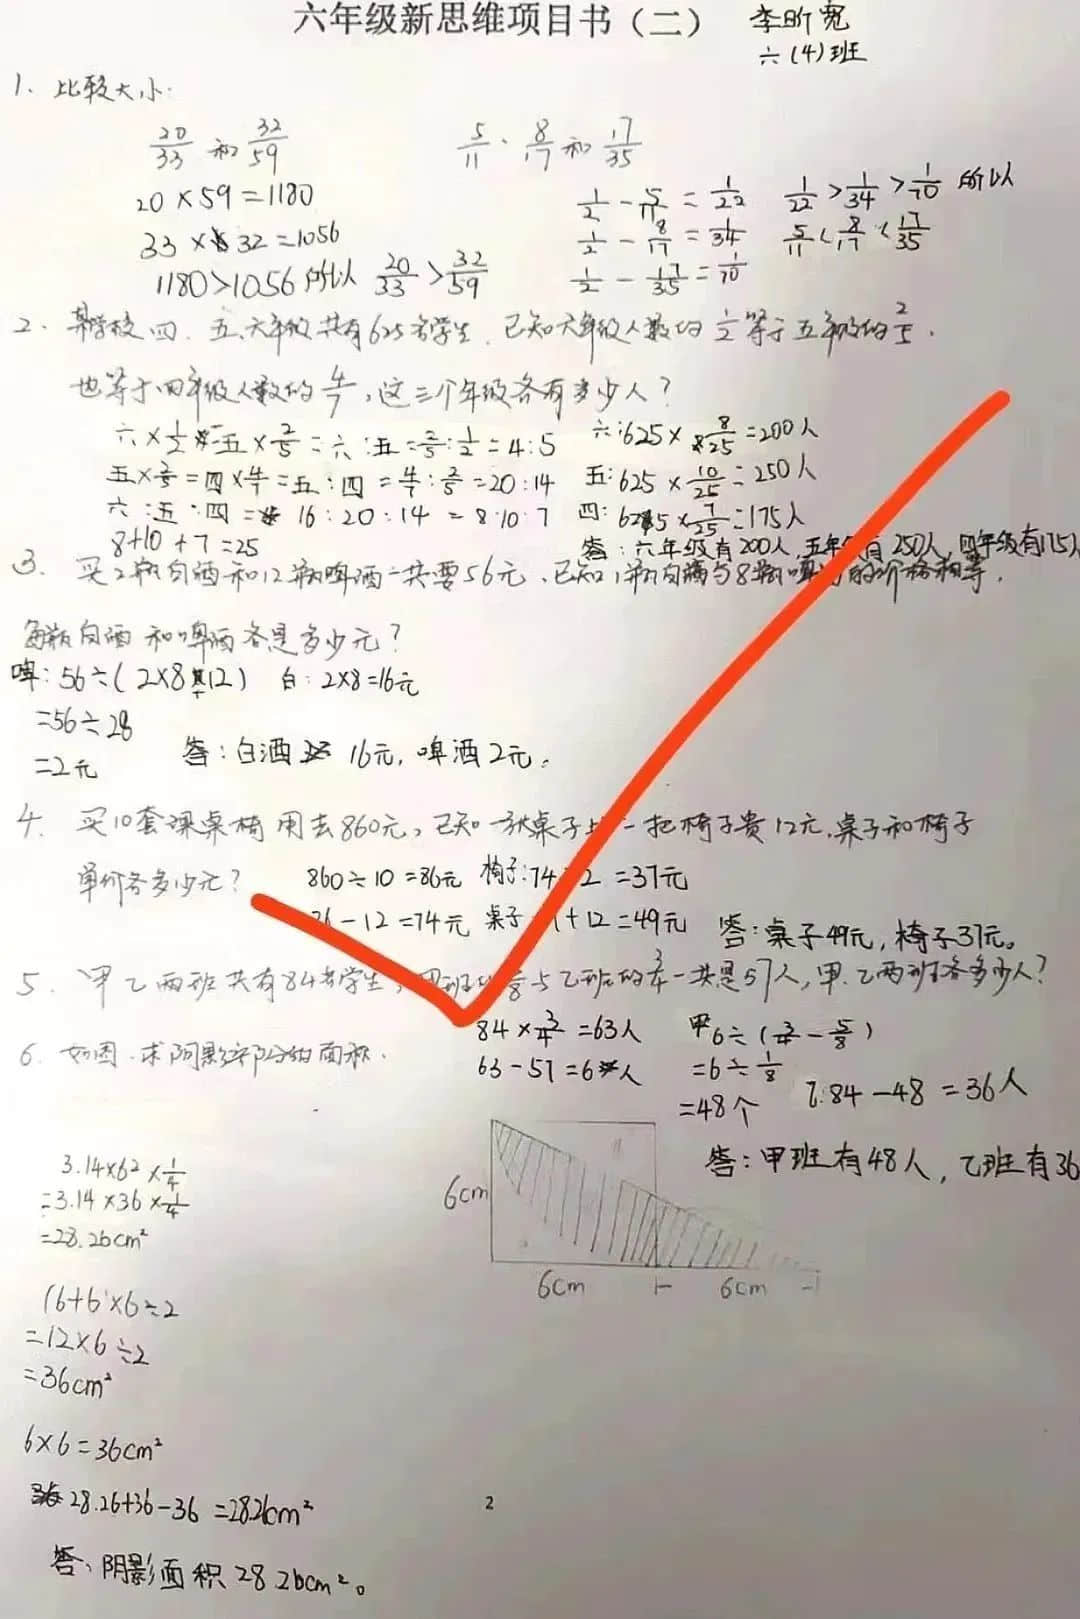 六年级新思维项目书（二） 李昕宽
六(4)班
1、比较大小:
20/33 和 32/59  5/11、8/17 和 17/35
20×59=1180
33×32=1056
1180>1056 所以 20/33 > 32/59
1/2 - 5/11 = 1/22  1/22 > 1/34 > 1/70 所以
1/2 - 8/17 = 1/34  5/11 < 8/17 < 17/35
1/2 - 17/35 = 1/70
2、某学校四、五、六年级共有625名学生、已知六年级人数的1/2等于五年级的2/5,
也等于四年级人数的4/7,这三个年级各有多少人?
六×1/2=五×2/5=六:五=2/5:1/2=4:5  六:625×8/25=200人
五×2/5=四×4/7=五:四=4/7:2/5=20:14  五:625×10/25=250人
六:五:四=16:20:14=8:10:7  四:625×7/25=175人
8+10+7=25  答:六年级有200人,五年级有250人,四年级有175人
3、买2瓶白酒和12瓶啤酒一共要56元、已知1瓶白酒与8瓶啤酒的价格相等,
每瓶白酒和啤酒各是多少元?
啤:56÷(2×8+12)  白:2×8=16元
=56÷28
=2元  答:白酒16元,啤酒2元。
4、买10套课桌椅用去860元,已知一张桌子比一把椅子贵12元,桌子和椅子
单价各多少元?  860÷10=86元  椅子:74÷2=37元
86-12=74元  桌子:37+12=49元  答:桌子49元,椅子37元。
5、甲乙两班共有84名学生,甲班的5/8与乙班的3/4一共是57人,甲、乙两班各多少人?
84×3/4=63人  甲6÷(3/4-5/8)
63-57=6人  =6÷1/8
=48个  乙:84-48=36人
答:甲班有48人,乙班有36
6、如图、求阴影部分的面积.
3.14×6²×1/4
=3.14×36×1/4
=28.26cm²
6cm
6cm  6cm
(6+6)×6÷2
=12×6÷2
=36cm²
6×6=36cm²
28.26+36-36=28.26cm²
2
答:阴影面积28.26cm²。